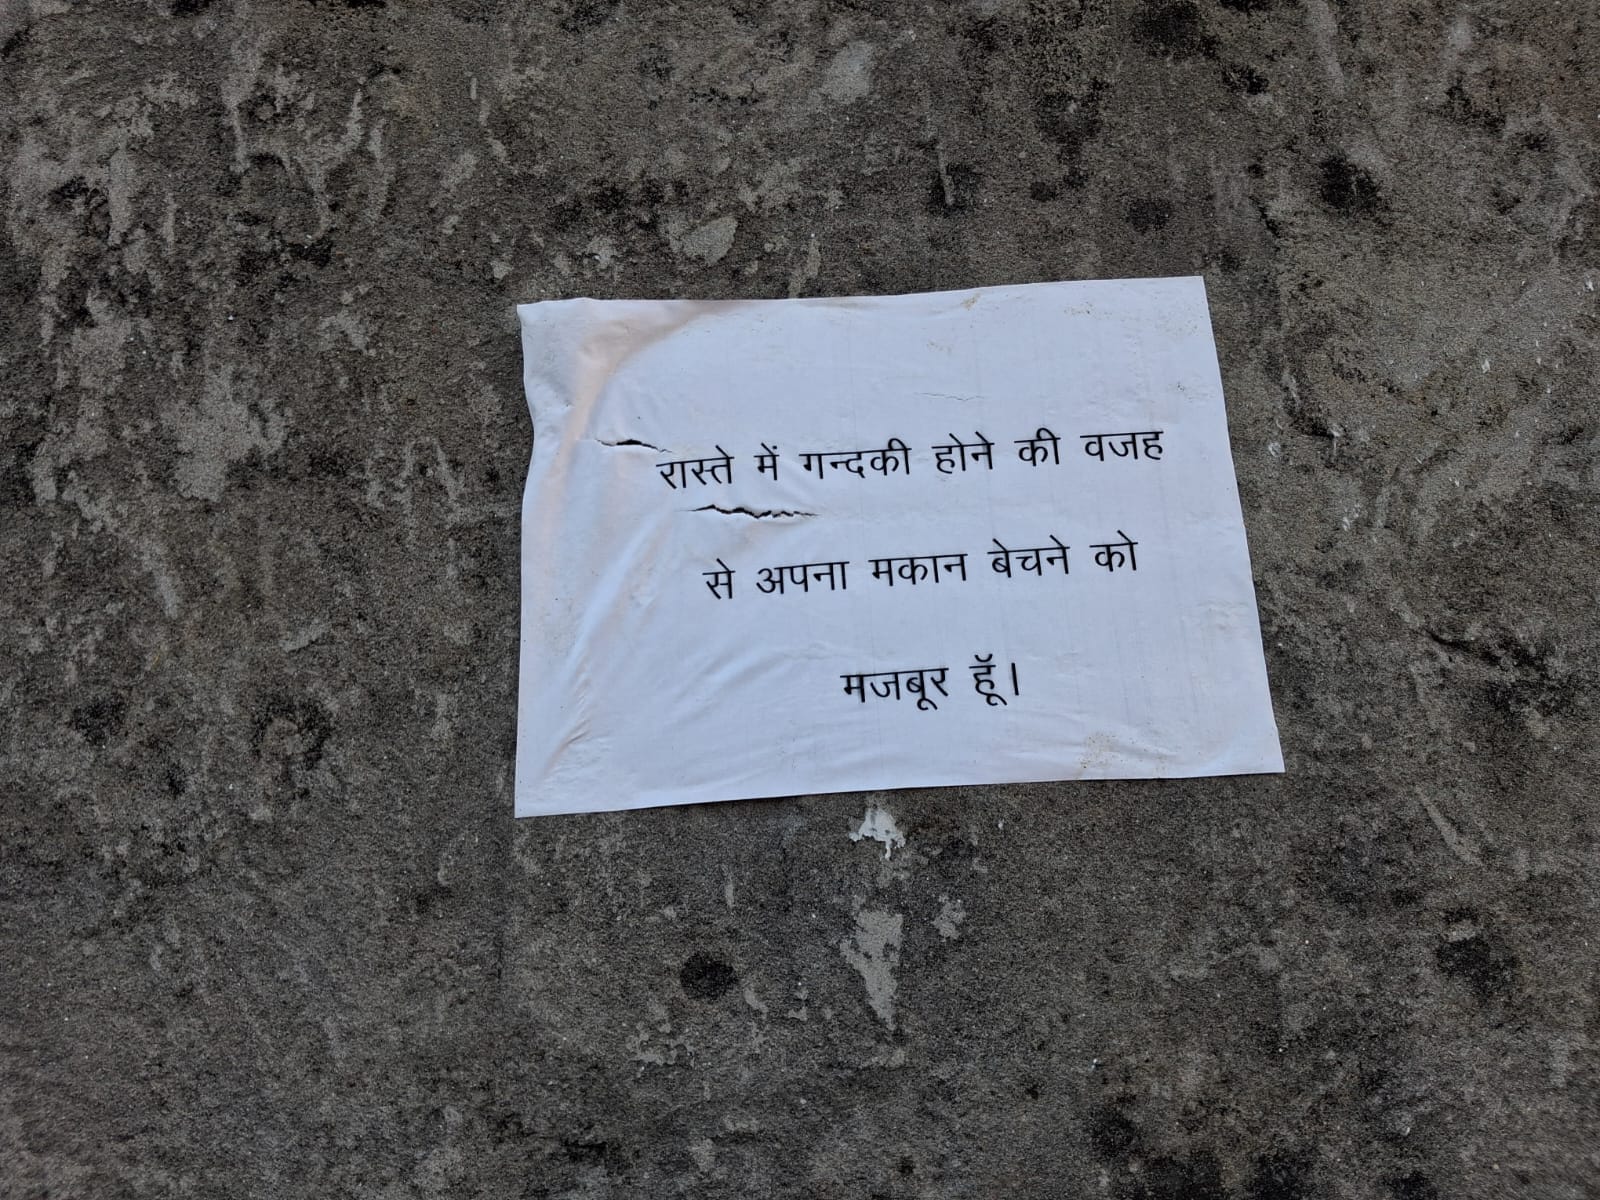 रास्ते में गन्दकी होने की वजह
से अपना मकान बेचने को
मजबूर हूॅ।